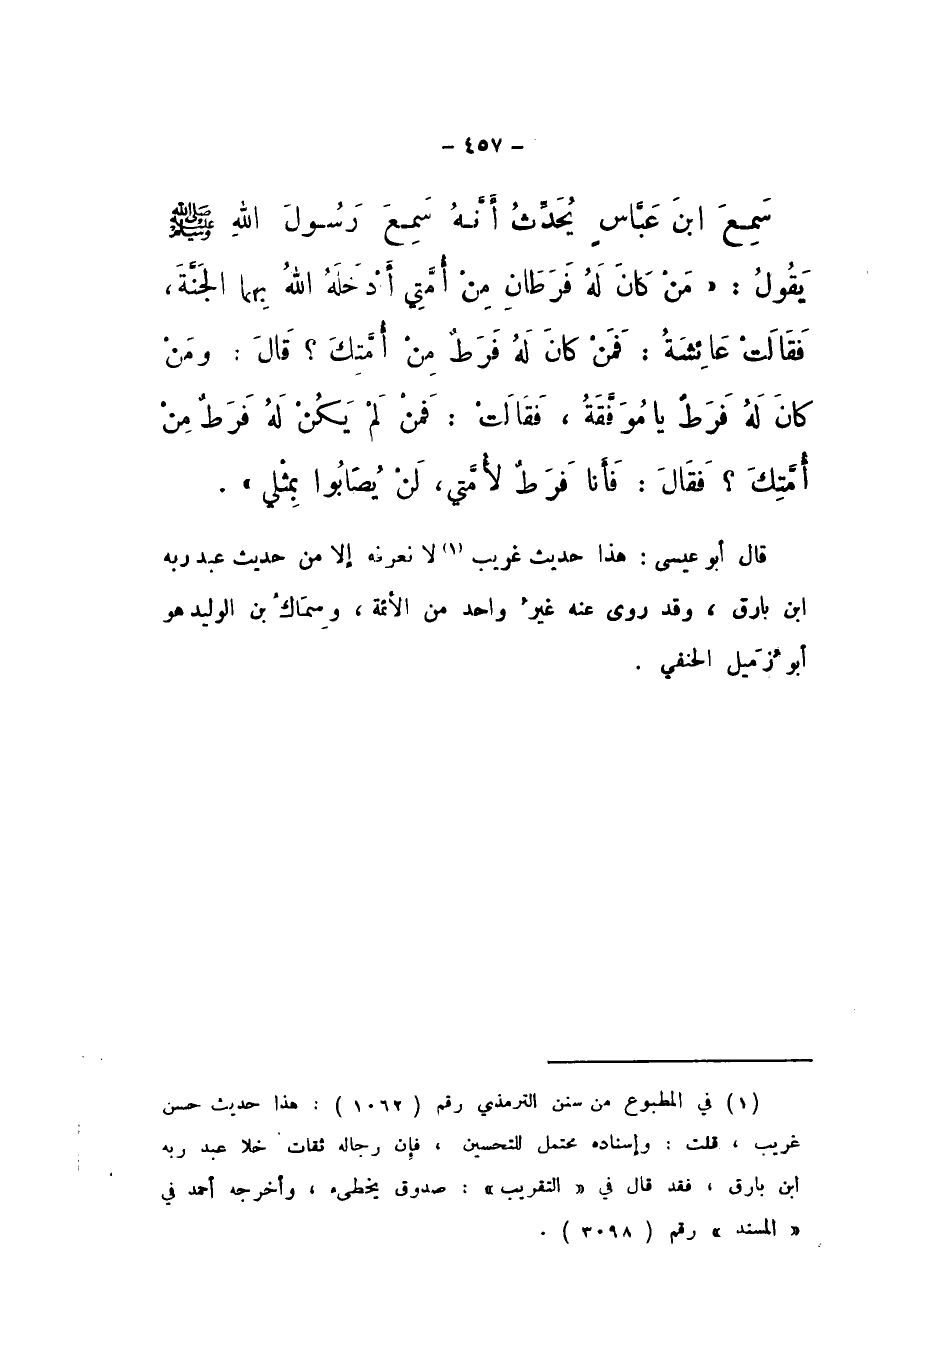 - ٤٥٧ -
سَمِعَ ابنَ عَبَّاسٍ يُحَدِّثُ أَنَّهُ سَمِعَ رَسُولَ اللهِ ﷺ
يَقُولُ : « مَنْ كَانَ لَهُ فَرَطَانِ مِنْ أُمَّتِي أَدْخَلَهُ اللهُ بِهِمَا الجَنَّةَ ،
فَقَالَتْ عَائِشَةُ : فَمَنْ كانَ لَهُ فَرَطٌ مِنْ أُمَّتِكَ ؟ قَالَ : ومَنْ
كانَ لَهُ فَرَطٌ يا مُوَفَّقَةُ ، فَقَالَتْ : فَمنْ لَمْ يَكُنْ لَهُ فَرَطٌ مِنْ
أُمَّتِكَ ؟ فَقَالَ : فَأَنا فَرَطٌ لأُمَّتي، لَنْ يُصَابُوا بِمْثْلي » .
قال أبو عيسى : هذا حديث غريب (١) لا نعرفه إلا من حديث عبد ربه
ابن بارق ، وقد روى عنه غيرُ واحد من الأئمة ، وسِمَاكُ بن الوليد هو
أبو زُمَيل الحنفي .
(١) في المطبوع من سنن الترمذي رقم ( ١٠٦٢ ) : هذا حديث حسن
غريب ، قلت : وإسناده محتمل للتحسين ، فإن رجاله ثقات خلا عبد ربه
ابن بارق ، فقد قال في « التقريب » : صدوق يخطىء ، وأخرجه أحمد في
« المسند » رقم ( ٣٠٩٨ ) .